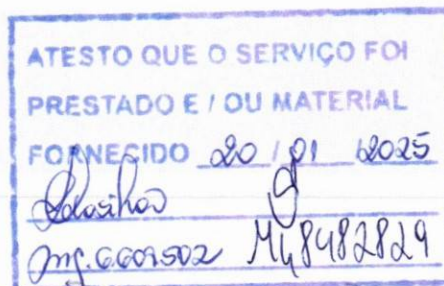 ATESTO QUE O SERVIÇO FOI
PRESTADO E / OU MATERIAL
FORNECIDO 20 / 01 /2025
mg.6601502 M48482829